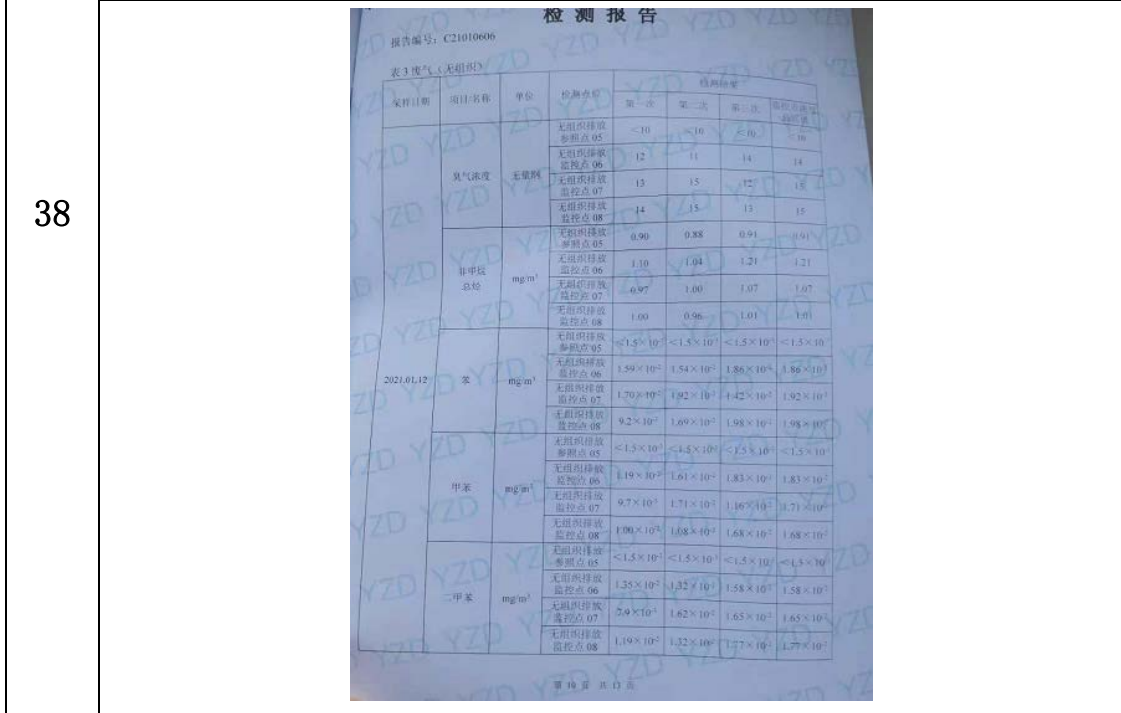 38
检测报告
报告编号：C21010606
表 3 废气（无组织）
采样日期 项目/名称 单位 检测点位 检测结果
第一次 第二次 第三次
臭气浓度 无量纲
无组织排放参照点 05 <10 <10 <10 <10
无组织排放监控点 06 12 11 14 14
无组织排放监控点 07 13 15 12 15
无组织排放监控点 08 14 15 13 15
非甲烷总烃 mg/m³
无组织排放参照点 05 0.90 0.88 0.91 0.91
无组织排放监控点 06 1.10 1.04 1.21 1.21
无组织排放监控点 07 0.97 1.00 1.07 1.07
无组织排放监控点 08 1.00 0.96 1.01 1.01
2021.01.12
苯 mg/m³
无组织排放参照点 05
无组织排放监控点 06 1.59×10⁻² 1.54×10⁻² 1.86×10⁻²
无组织排放监控点 07 1.70×10⁻² 1.92×10⁻² 1.42×10⁻²
无组织排放监控点 08 1.69×10⁻² 1.98×10⁻²
甲苯 mg/m³
无组织排放参照点 05
无组织排放监控点 06 1.19×10⁻² 1.61×10⁻² 1.83×10⁻²
无组织排放监控点 07 1.71×10⁻² 1.16×10⁻² 1.71×10⁻²
无组织排放监控点 08 1.08×10⁻² 1.68×10⁻² 1.68×10⁻²
二甲苯 mg/m³
无组织排放参照点 05
无组织排放监控点 06 1.35×10⁻² 1.32×10⁻² 1.58×10⁻² 1.58×10⁻²
无组织排放监控点 07 1.62×10⁻² 1.65×10⁻² 1.65×10⁻²
无组织排放监控点 08 1.19×10⁻² 1.32×10⁻² 1.77×10⁻² 1.77×10⁻²
第 10 页 共 13 页
YZD